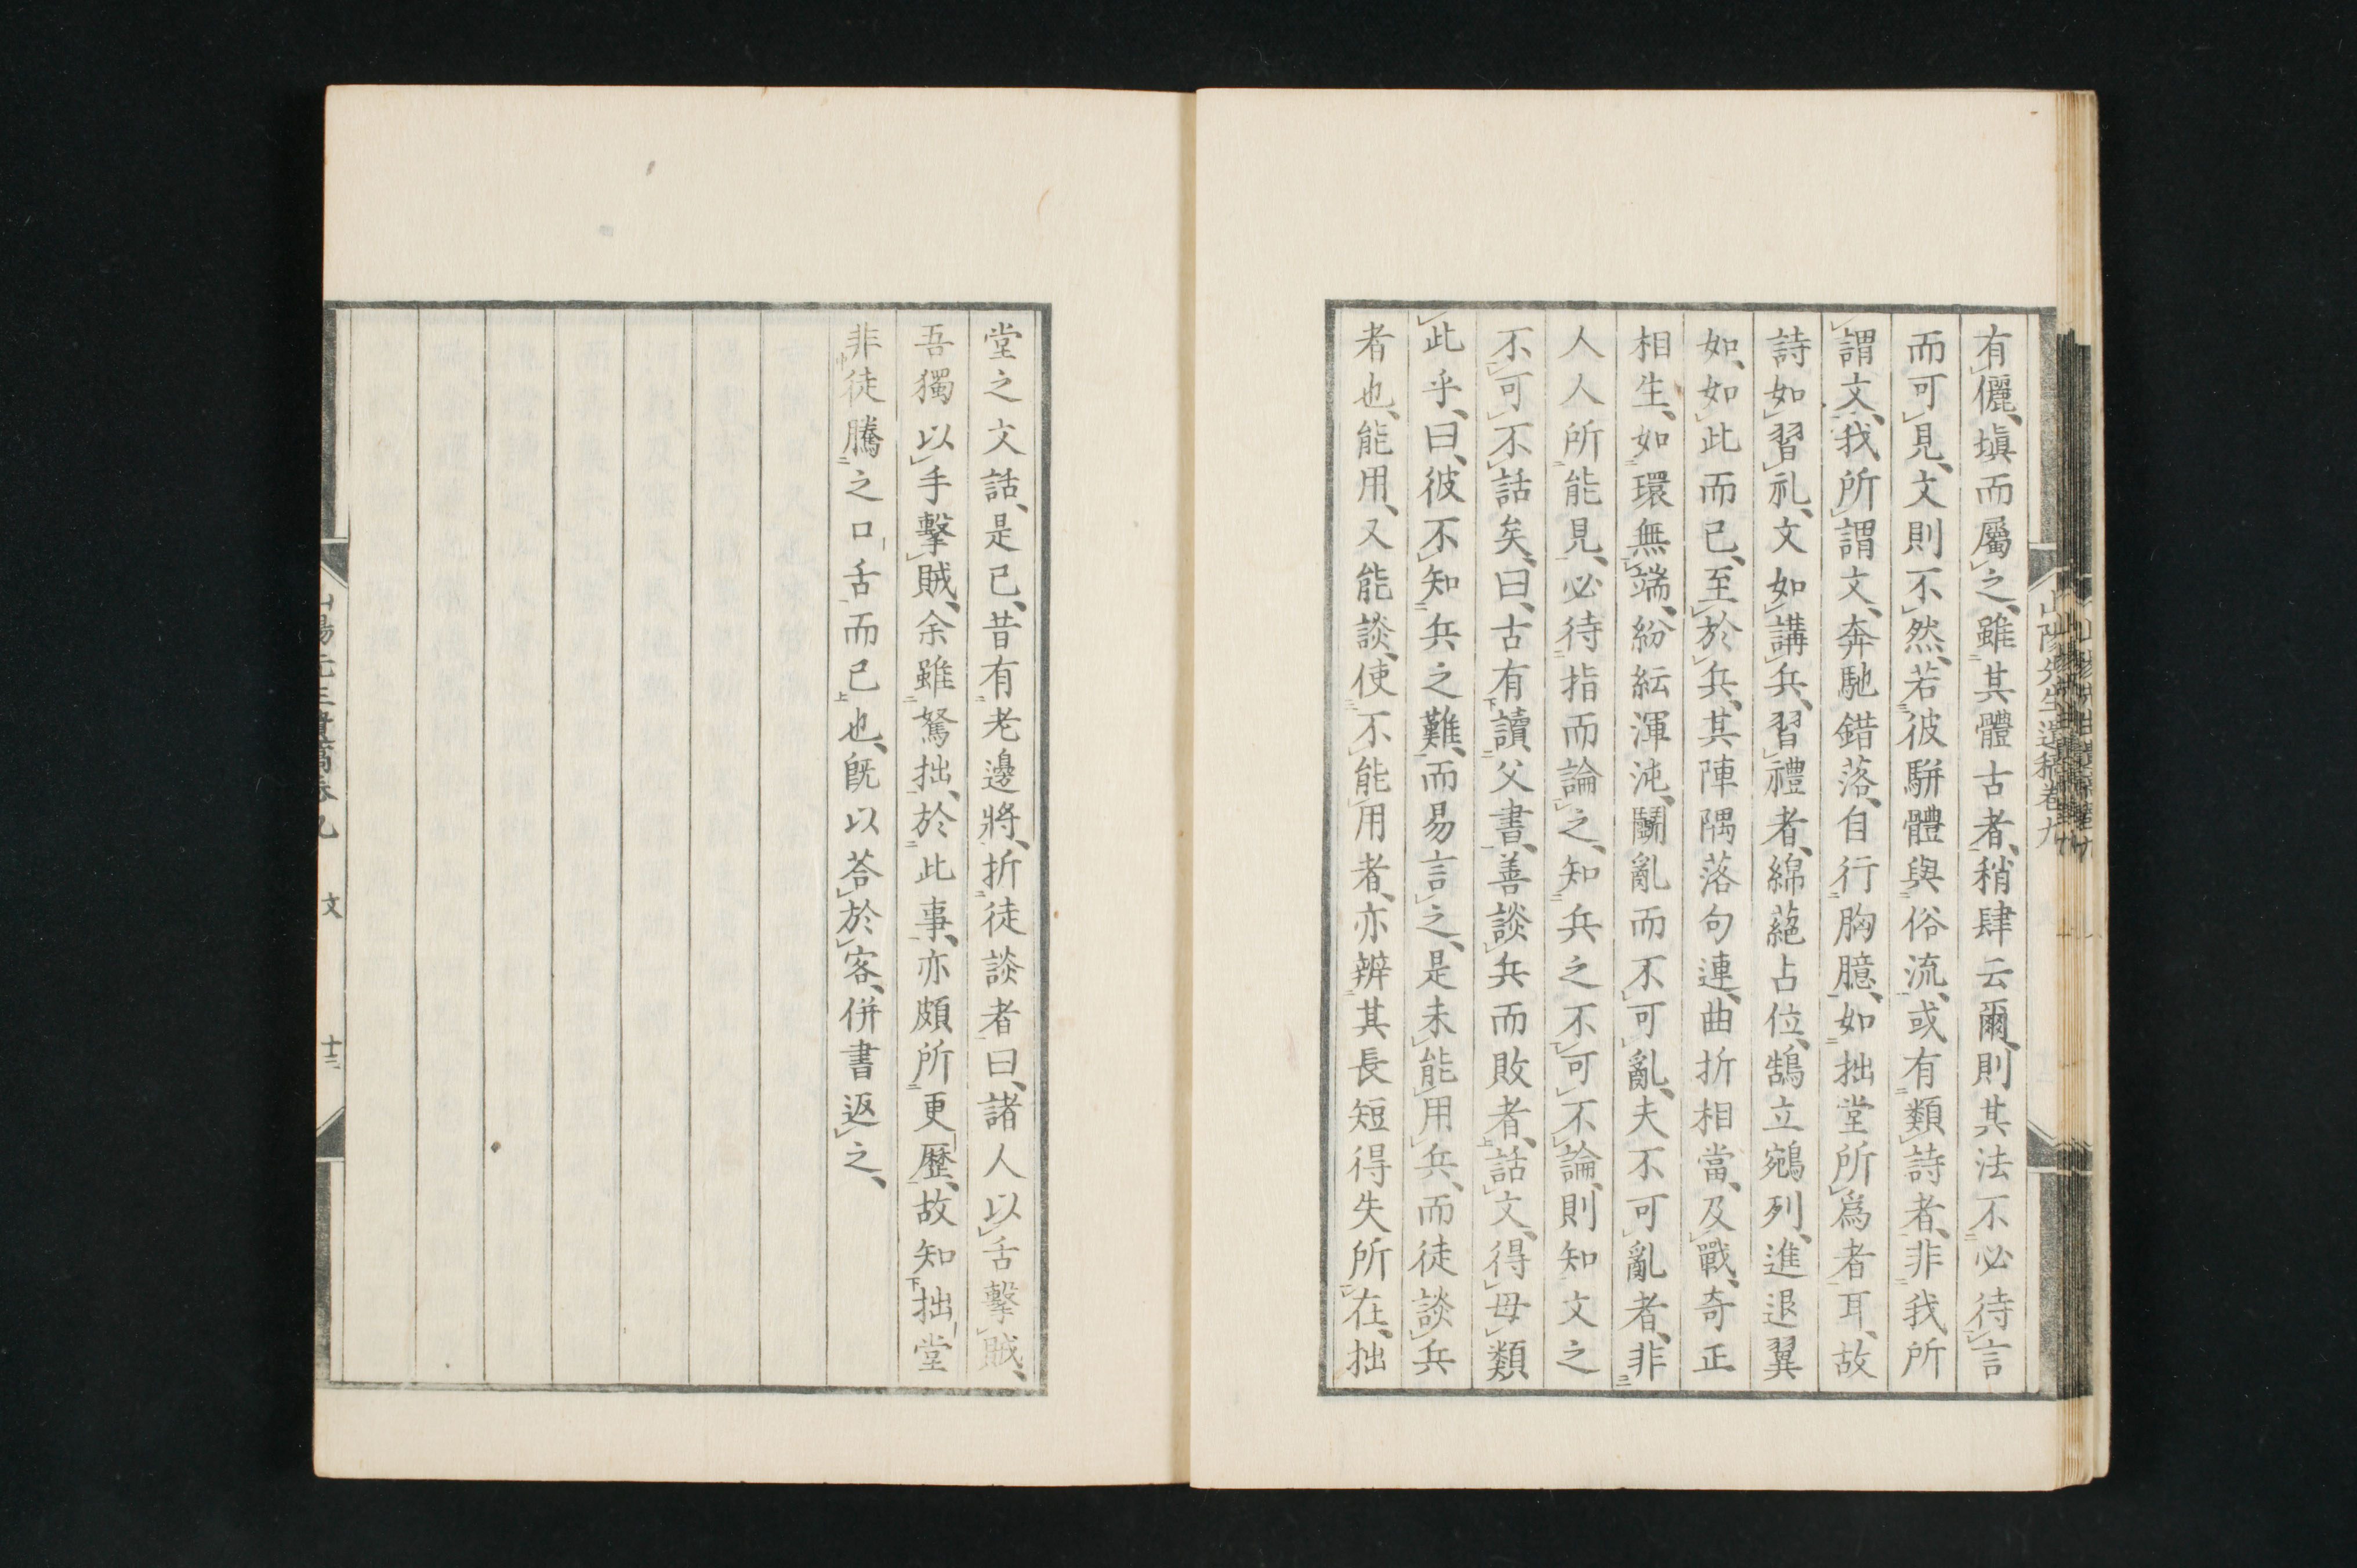 有儷、塡而屬之、雖其體古者、稍肆云爾、則其法不必待言
而可見、文則不然、若彼駢體與俗流、或有類詩者、非我所
謂文、我所謂文、奔馳錯落、自行胸臆、如拙堂所爲者耳、故
詩如習礼、文如講兵、習禮者、綿蕝占位、鵠立鵷列、進退翼
如、如此而已、至於兵、其陣隅落句連、曲折相當、及戰、奇正
相生、如環無端、紛紜渾沌、鬭亂而不可亂、夫不可亂者、非
人人所能見、必待指而論之、知兵之不可不論、則知文之
不可不話矣、曰、古有讀父書、善談兵而敗者、話文、得毋類
此乎、曰、彼不知兵之難、而易言之、是未能用兵、而徒談兵
者也、能用、又能談、使不能用者、亦辨其長短得失所在、拙
山陽先生遺稿卷九
堂之文話、是已、昔有老邊將、折徒談者曰、諸人以舌擊賊、
吾獨以手擊賊、余雖駑拙、於此事、亦頗所更歷、故知拙堂
非徒騰之口舌而已也、既以荅於客、併書返之、
山陽先生遺稿卷九 文 十二